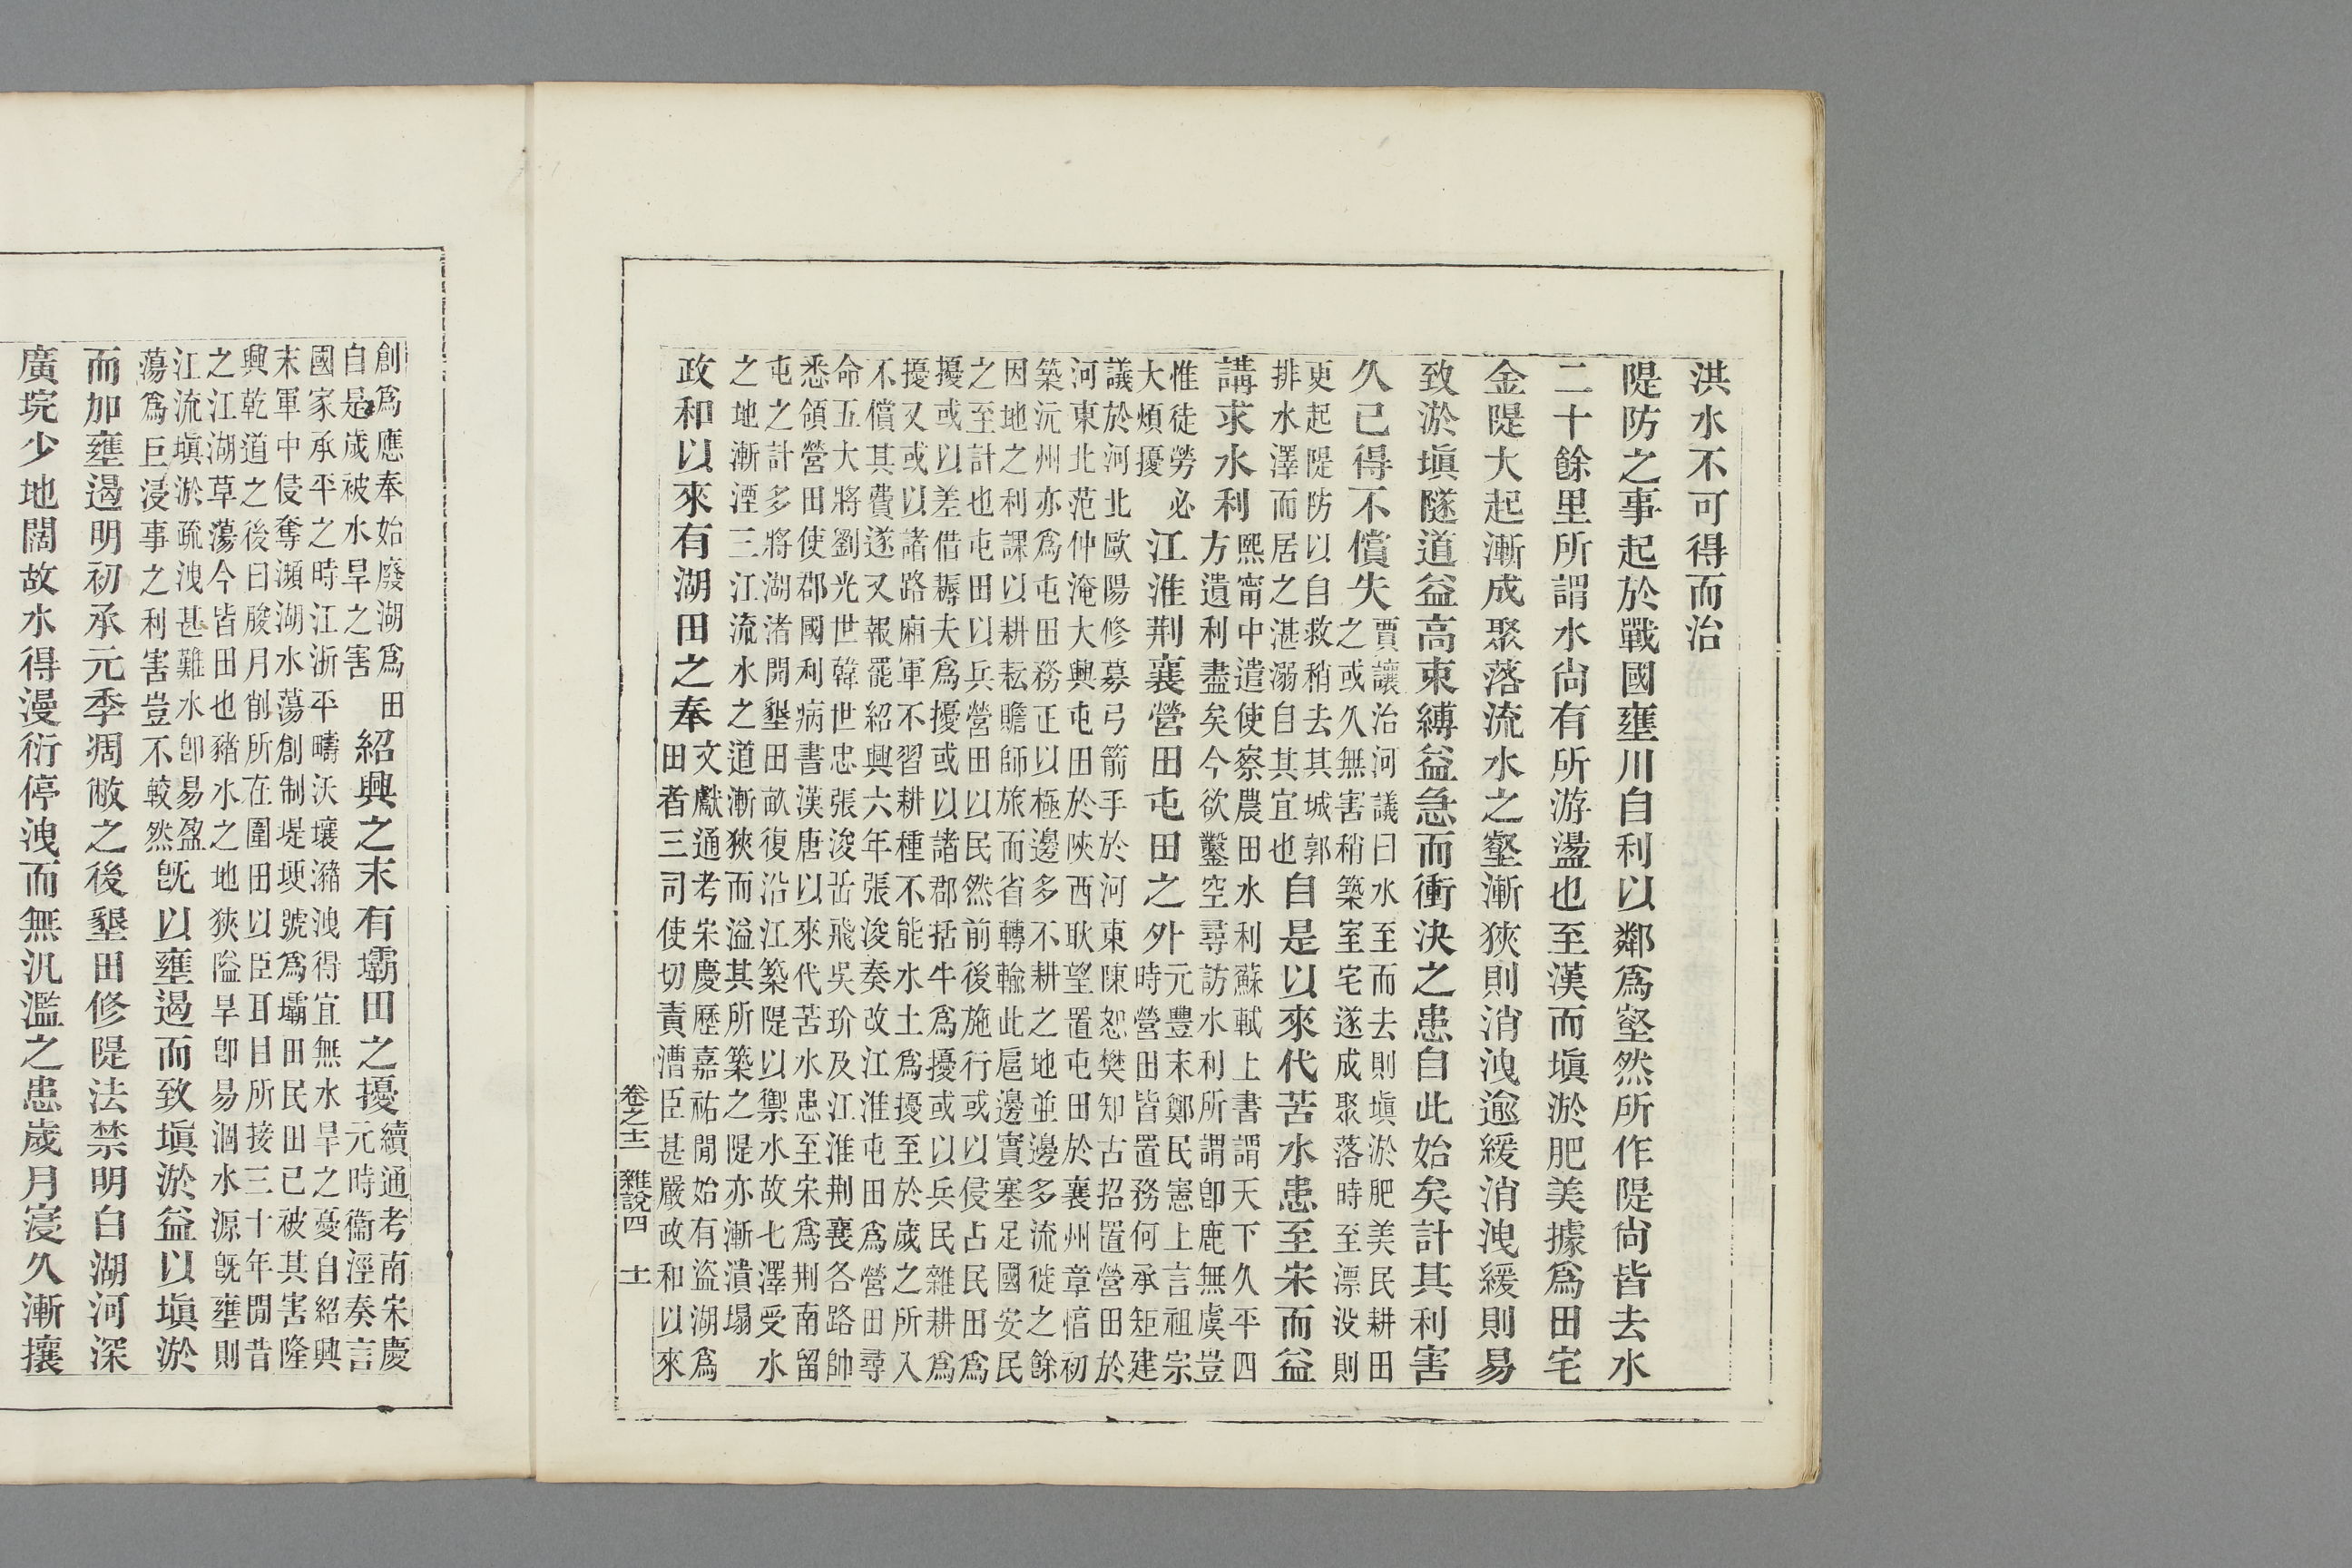 洪水不可得而治
隄防之事起於戰國壅川自利以鄰爲壑然所作隄尙皆去水
二十餘里所謂水尙有所游盪也至漢而塡淤肥美據爲田宅
金隄大起漸成聚落流水之壑漸狹則消洩逾緩消洩緩則易
致淤塡隧道益高束縛益急而衝決之患自此始矣計其利害
久已得不償失
賈讓治河議曰水至而去則塡淤肥美民耕田
之或久無害稍築室宅遂成聚落時至漂没則
更起隄防以自救稍去其城郭
排水澤而居之湛溺自其宜也
自是以來代苦水患至宋而益
講求水利
熙甯中遣使察農田水利蘇軾上書謂天下久平四
方遺利盡矣今欲鑿空尋訪水利所謂卽鹿無虞豈
惟徒勞必
大煩擾
江淮荆襄營田屯田之外
元豐末鄭民憲上言祖宗
時營田皆置務何承矩建
議於河北歐陽修募弓箭手於河東陳恕樊知古招置營田於
河東北范仲淹大興屯田於陜西耿望置屯田於襄州章惇初
築沅州亦爲屯田務正以極邊多不耕之地並邊多流徙之餘
因地之利課以耕耘贍師旅而省轉輸此扈邊實塞足國安民
之至計也屯田以兵營田以民然前後施行或以侵占民田爲
擾或以差借耨夫爲擾或以諸郡括牛爲擾或以兵民雜耕爲
擾又或以諸路廂軍不習耕種不能水土爲擾至於歲之所入
不償其費遂又報罷紹興六年張浚奏改江淮屯田爲營田尋
命五大將劉光世韓世忠張浚岳飛吳玠及江淮荆襄各路帥
悉領營田使郡國利病書漢唐以來代苦水患至宋爲荆南留
屯之計多將湖渚開墾田畝復沿江築隄以禦水故七澤受水
之地漸湮三江流水之道漸狹而溢其所築之隄亦漸潰塌
政和以來有湖田之奉
文獻通考宋慶歷嘉祐閒始有盜湖爲
田者三司使切責漕臣甚嚴政和以來
卷之十三 雜說四 十一
創爲應奉始廢湖爲田
自是歲被水旱之害
紹興之末有壩田之擾
續通考南宋慶
元時衞涇奏言
國家承平之時江浙平疇沃壤瀦洩得宜無水旱之憂自紹興
末軍中侵奪瀕湖水蕩創制堤埂號爲壩田民田已被其害隆
興乾道之後日朘月削所在圍田以臣耳目所接三十年閒昔
之江湖草蕩今皆田也豬水之地狹隘旱卽易涸水源旣壅則
江流塡淤疏洩甚難水卽易盈
蕩爲巨浸事之利害豈不較然
旣以壅遏而致塡淤益以塡淤
而加壅遏明初承元季凋敝之後墾田修隄法禁明白湖河深
廣垸少地闊故水得漫衍停洩而無汎濫之患歲月寖久漸攘